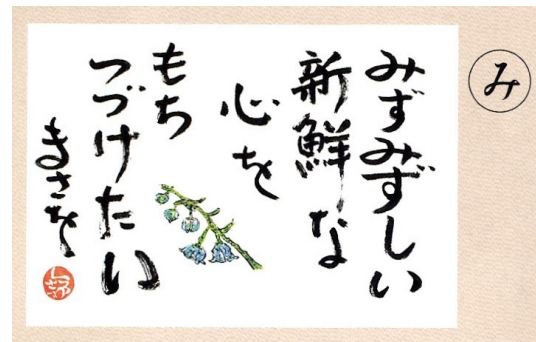 み
みずみずしい
新鮮な
心を
もち
つづけたい
まさを